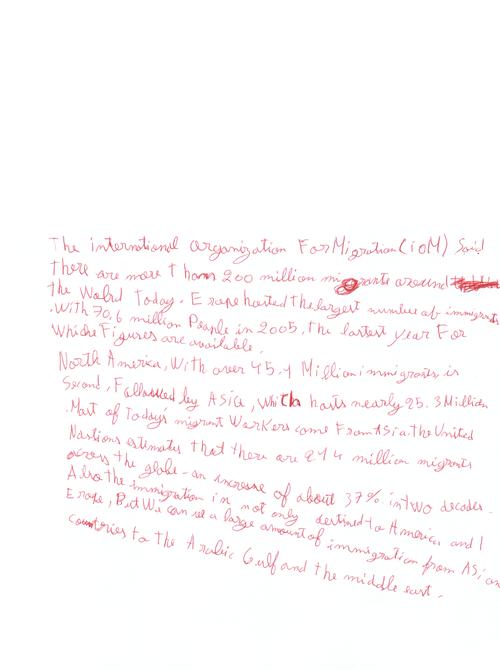 The international organization For Migration (ioM) Said
there are more than 200 million migrants around
the Wolrd Today. Erope hosted the largest number of immigrants
.With 70,6 million People in 2005, the lastest year For
Whiche Figures are available.
North America, With over 45,1 Million immigrants, is
Second, Followed by Asia, which hosts nearly 25.3 Million
.Most of Today's migrant Workers come From Asia.the United
Nastions estimates that there are 214 million migrants
across the globe - an increase of about 37% in two decades.
Also the immigration in not only destined to America and
Erope, But We can see a large amount of immigration from Asian
countries to the Arabic Gulf and the middle east.